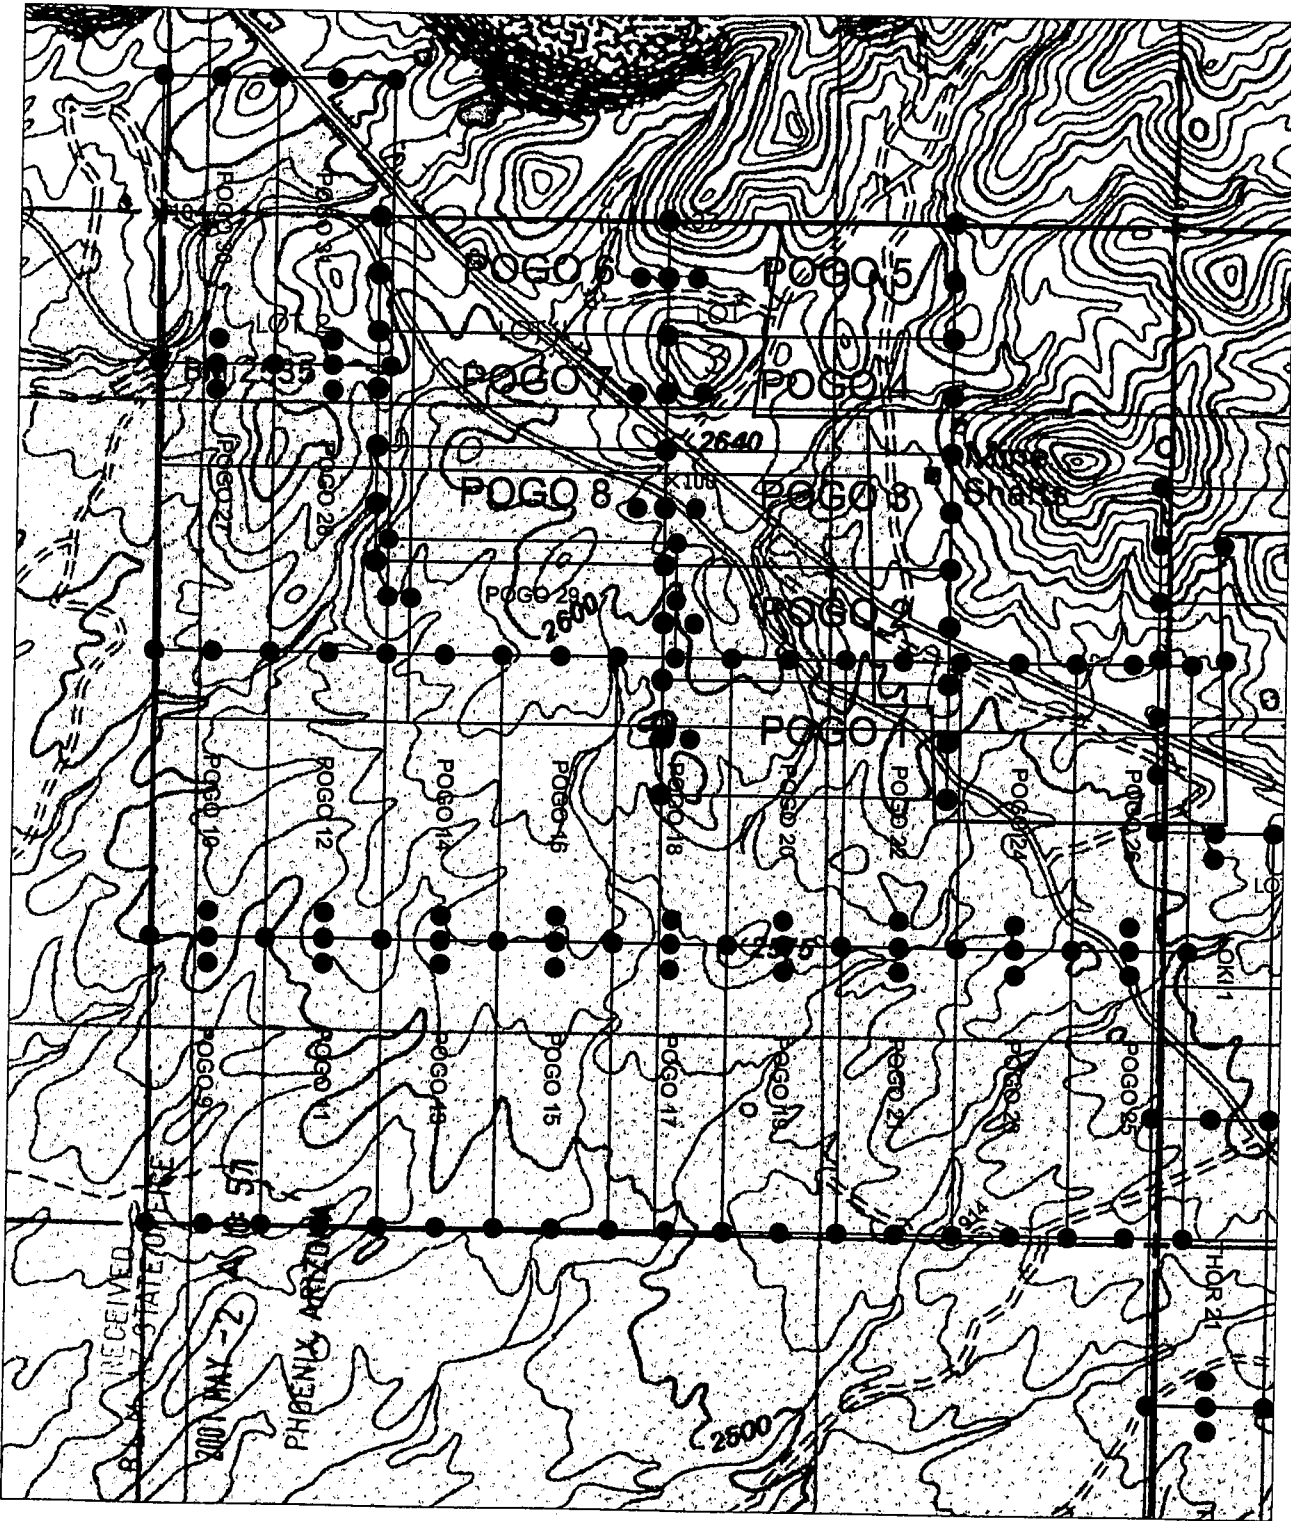 POGO 30
POGO 31
POGO 6
POGO 5
LOT
LOT
LOT
BM 2535
POGO 7
POGO 4
2640
Mine
Shafts
POGO 27
POGO 28
POGO 8
×
POGO 3
POGO 29
2600
POGO 2
POGO 1
POGO 10
POGO 12
POGO 14
POGO 16
POGO 18
POGO 20
POGO 22
POGO 24
POGO 26
LOKI 1
2575
POGO 9
POGO 11
POGO 13
POGO 15
POGO 17
POGO 19
POGO 21
POGO 23
POGO 25
THOR 21
914
2500
RECEIVED
STATE OFFICE
2001 MAY -2 A 10: 57
PHOENIX, ARIZONA